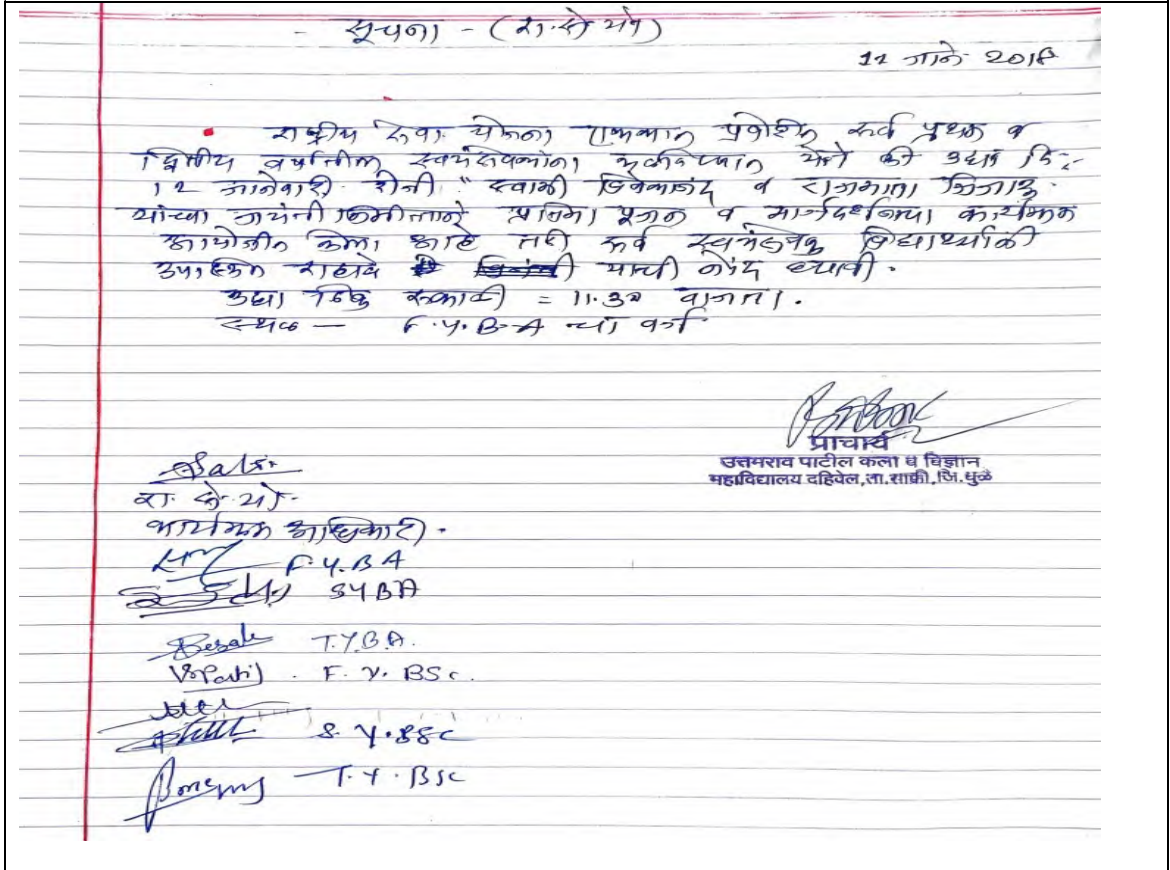 - सूचना - (रा.से.यो)
11 जाने 2018
राष्ट्रीय सेवा योजना एककात प्रवेशित सर्व प्रथम व
द्वितीय वर्षातील स्वयंसेवकांना कळविण्यात येते की उद्या दि:-
12 जानेवारी रोजी "स्वामी विवेकानंद व राजमाता जिजाऊ
यांच्या जयंती निमित्ताने प्रतिमा पूजन व मार्गदर्शनाचा कार्यक्रम
आयोजीत केला आहे तरी सर्व स्वयंसेवक विद्यार्थ्यांनी
उपस्थित राहावे याची नोंद घ्यावी.
उद्या सकाळी = 11.30 वाजता.
स्थळ - F.Y.B.A च्या वर्गात
प्राचार्य
उत्तमराव पाटील कला व विज्ञान
महाविद्यालय दहिवेल, ता.साक्री, जि.धुळे
रा. से. यो.
कार्यक्रम अधिकारी.
F.Y.BA
SYBA
T.Y.B.A.
VSPatil F. Y. BSc.
S.Y.BSc
T.Y.BSc